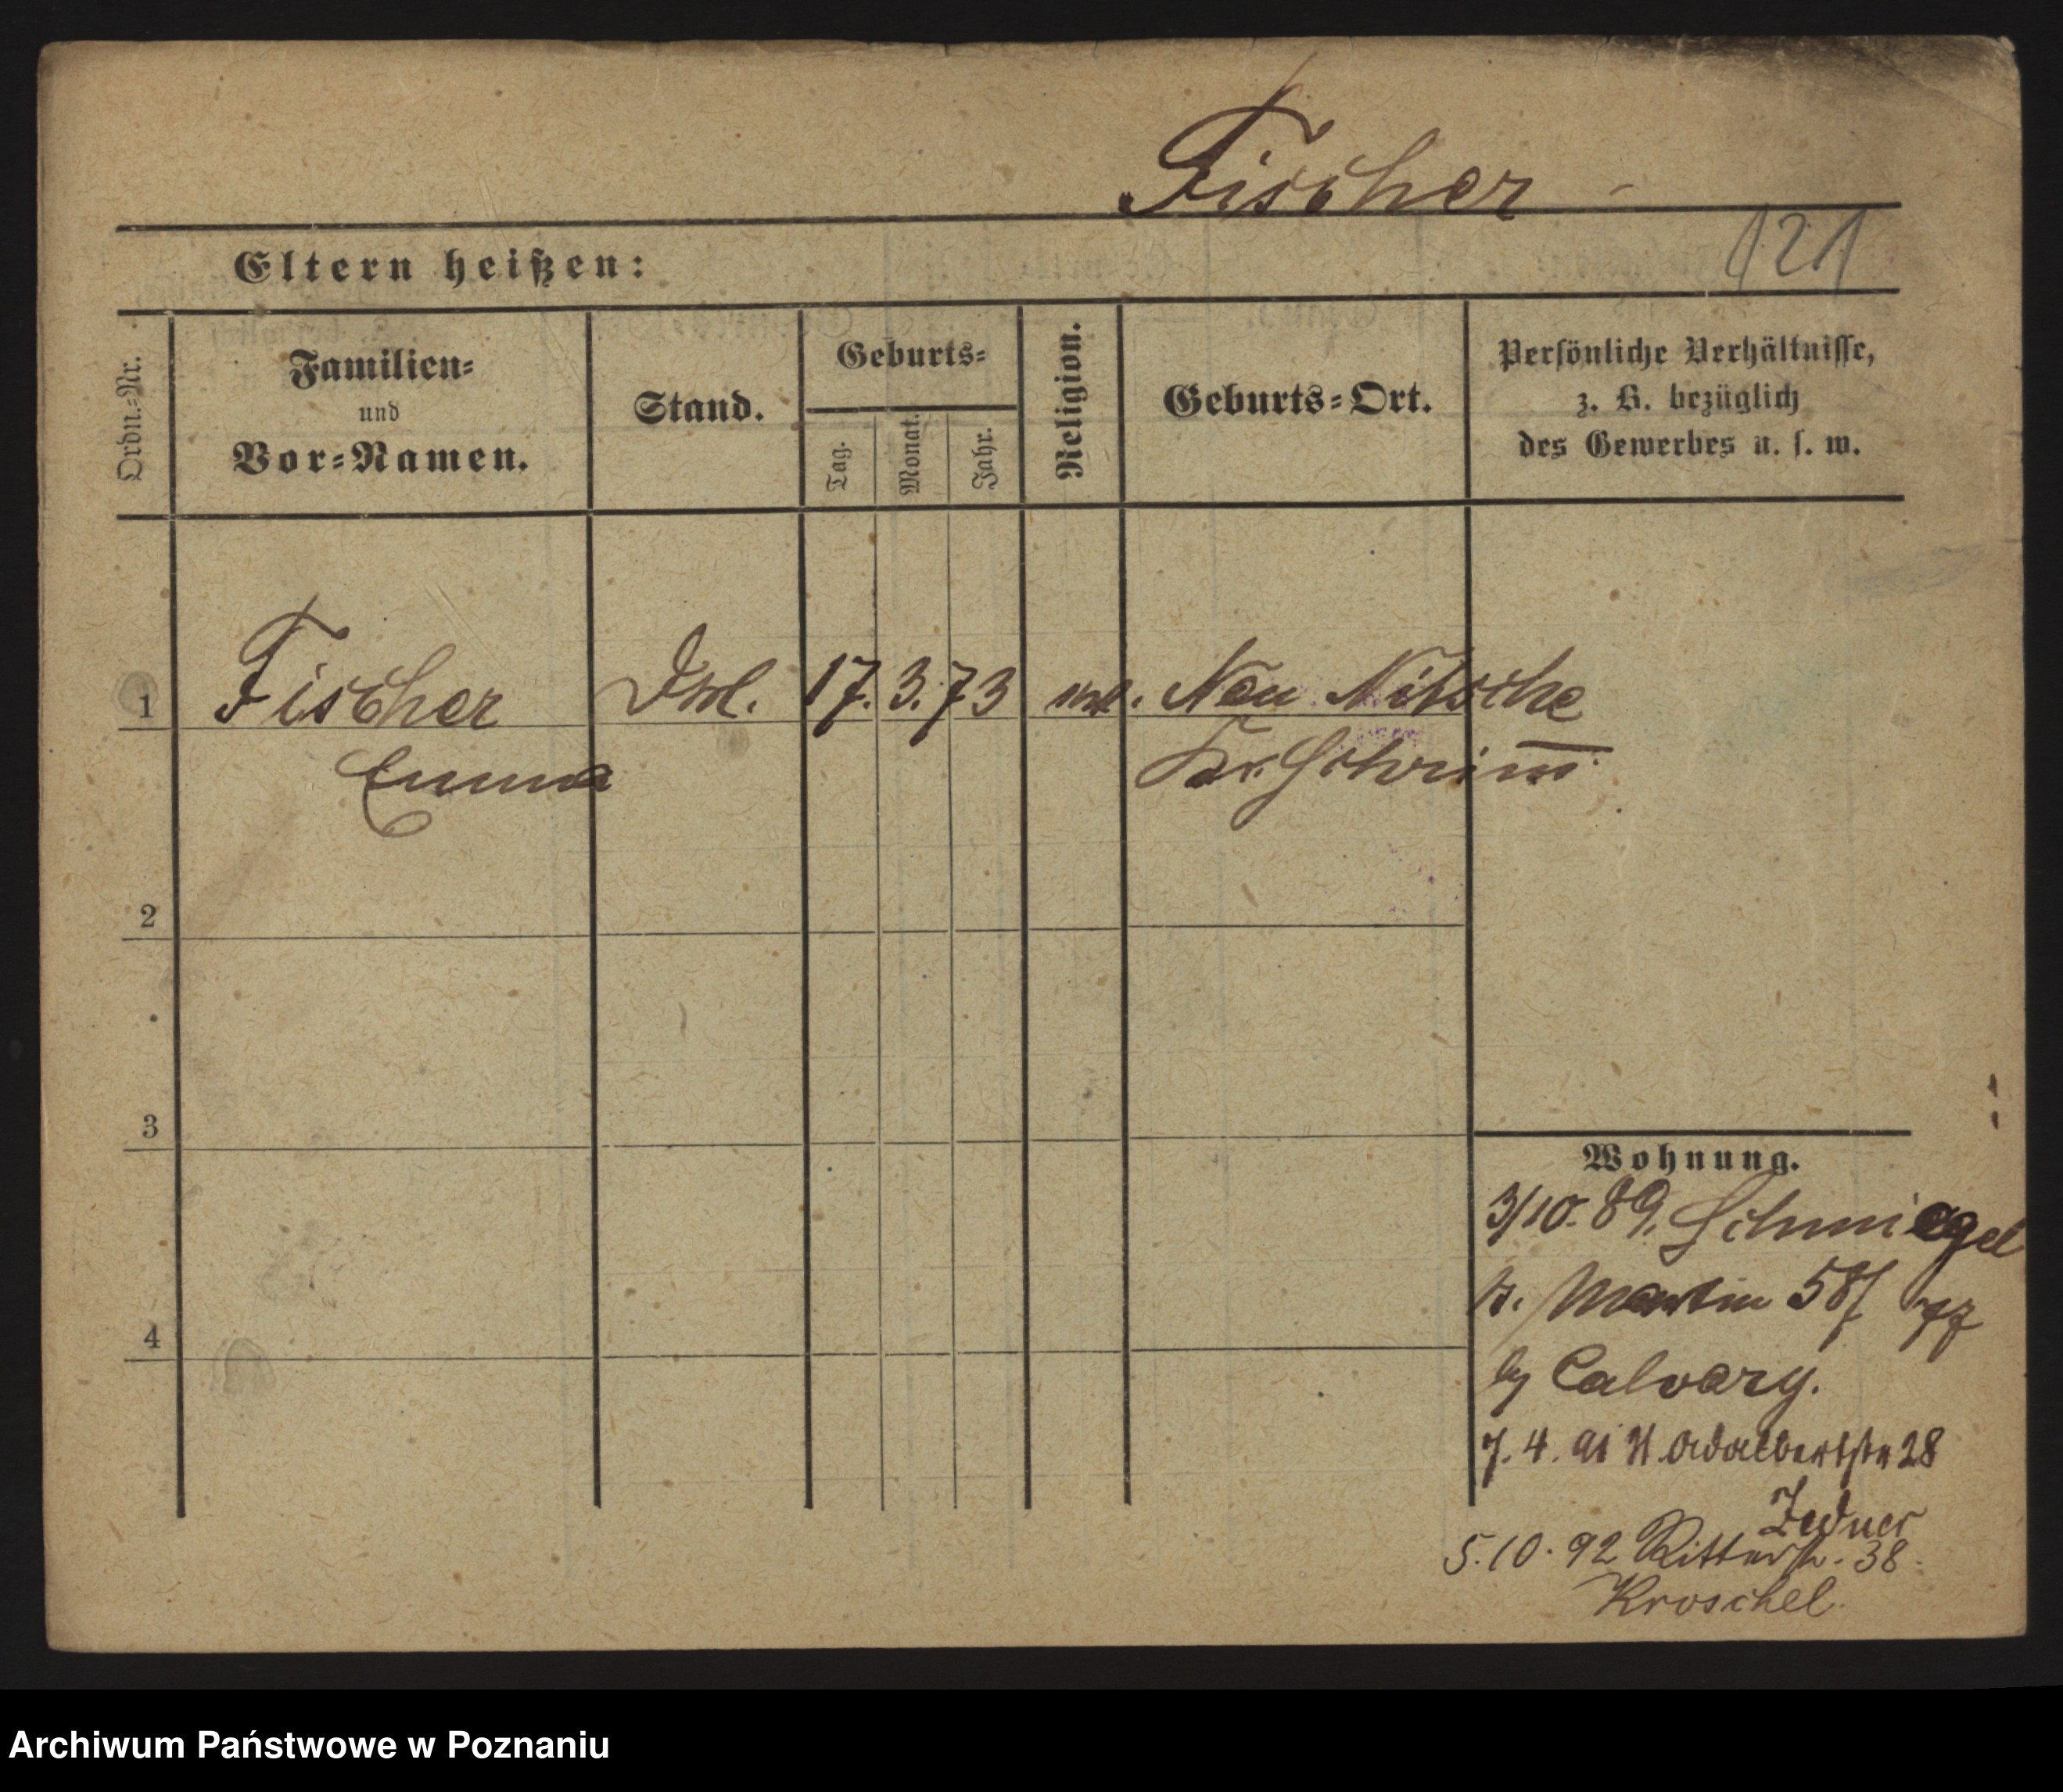 Fischer
121
Eltern heißen:
Ordn.-Nr.
Familien-
und
Vor-Namen.
Stand.
Geburts-
Tag.
Monat.
Jahr.
Religion.
Geburts-Ort.
Persönliche Verhältnisse,
z. B. bezüglich
des Gewerbes u. s. w.
1
Fischer
Emma
17. 3. 73
Neu Nitsche
Kr. Schrim̅
2
3
4
Wohnung.
3/10. 89. Schmiegel
Martin 58/
Calvary.
7. 4. 91 Adalbertstr 28
Zedner
5. 10. 92 Ritterstr. 38.
Kroschel.
Archiwum Państwowe w Poznaniu